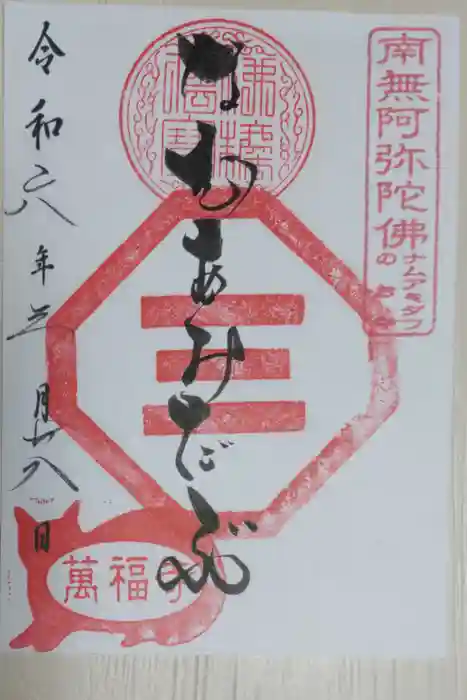 南無阿弥陀佛の
ナムアミダブ
佛法僧寳
なむあみだぶ
三
令和六年三月廿八日
萬福寺